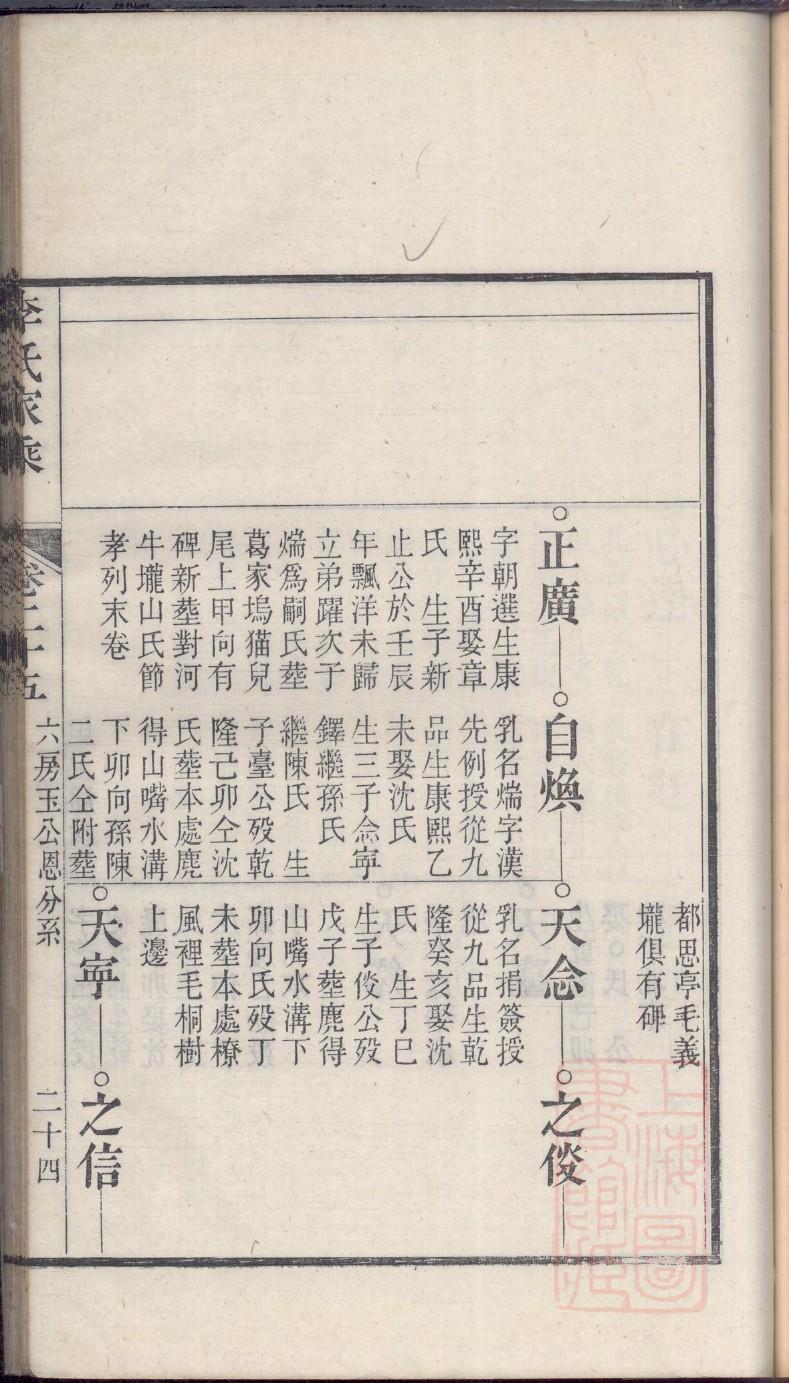 都思亭毛義
壠俱有碑
正廣
字朝選生康
熙辛酉娶章
氏　生子新
止公於壬辰
年飄洋未歸
立弟躍次子
煓爲嗣氏塟
葛家塢猫兒
尾上甲向有
碑新塟對河
牛壠山氏節
孝列末卷
自煥
乳名煓字漢
先例授從九
品生康熙乙
未娶沈氏
生三子念寧
鐸繼孫氏
繼陳氏　生
子臺公殁乾
隆己卯仝沈
氏塟本處麂
得山嘴水溝
下卯向孫陳
二氏仝附塟
天念
乳名捐簽授
從九品生乾
隆癸亥娶沈
氏　生丁巳
生子俊公殁
戊子塟麂得
山嘴水溝下
卯向氏殁丁
未塟本處橑
風裡毛桐樹
上邊
之俊
天寧
之信
李氏家乘
卷二十五
六房玉公恩分系
二十四
上海圖書館藏